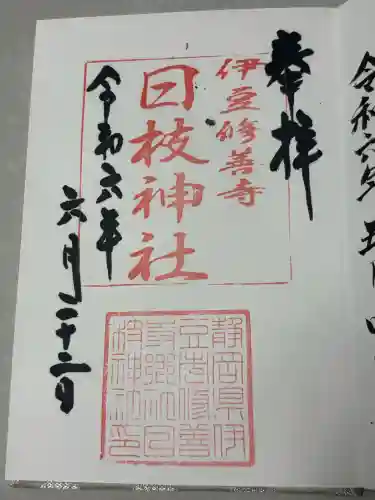 奉拝
伊豆修善寺
日枝神社
令和六年
六月二十二日
静岡県伊
豆市修善
寺鄉社日
枝神社印
令和六年五月四